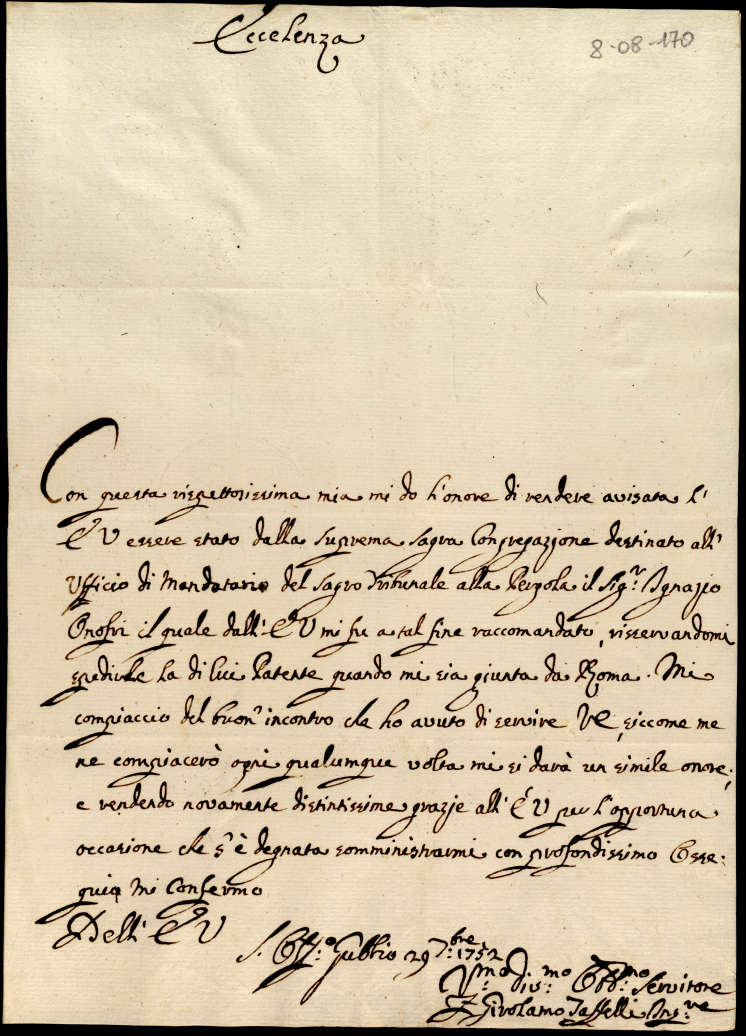 Eccelenza
8-08-170
Con questa rispettosissima mia mi do l'onore di rendere avisata l'
E V essere stato dalla Suprema Sagra Congregazione destinato all'
Ufficio di Mandatario del Sagro Tribunale alla Pergola il Sig.r Ignazio
Onofri il quale dall' E V mi fu a tal fine raccomandato, risservandomi
spedirle la di lui Patente quando mi sia giunta da Roma. Mi
compiaccio del buon' incontro che ho avuto di servire VE, siccome me
ne compiacerò ogni qualumque volta mi si darà un simile onore;
e rendendo novamente distintissime grazje all' E V per l'opportuna
occasione che s' è degnata somministrarmi con profondissimo Osse:
quio mi Confermo
Dell' E V
S. Off.o Gubbio 29 7:bre 1752
V:mo Div:mo Obb:mo Servitore
F Girolamo Inq:re